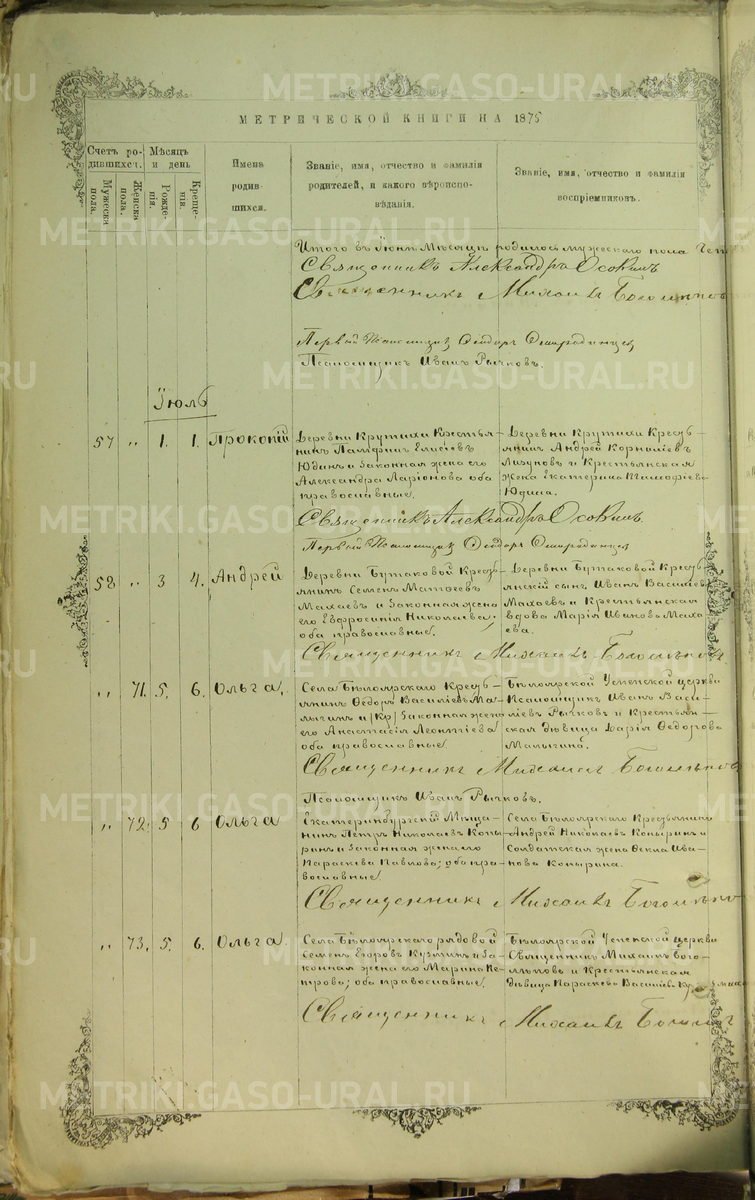 МЕТРИЧЕСКОЙ КНИГИ НА 1875
Счетъ ро-
дившихся.
Мужеска
пола.
Женска
пола.
Мѣсяцъ
и день
Рожде-
нія.
Креще-
нія.
Имена
родив-
шихся.
Званіе, имя, отчество и фамилія
родителей, и какого вѣроиспо-
вѣданія.
Званіе, имя, отчество и фамилія
воспріемниковъ.
Итого въ Іюнѣ Мѣсяцѣ родилось мужескаго пола
Священникъ Александръ
Священникъ Михаилъ
Первый Псаломщикъ Ѳеодоръ
Псаломщикъ Иванъ Рычковъ.
Іюль
57 „ 1. 1. Прокопій
Деревни Крутихи Крестья-
нинъ Памфилъ Елисѣевъ
Юдинъ и законная жена его
Александра Ларіонова оба
православные.
Деревни Крутихи Кресть-
янинъ Андрей Корниліевъ
Лизуновъ и Крестьянская
жена Екатерина Тимофѣева
Юдина.
Священникъ Александръ
Первый Псаломщикъ Ѳеодоръ
58 „ 3 4. Андрей
Деревни Бутаковой Кресть-
янинъ Семенъ Матѳеевъ
Махаевъ и законная жена
его Евфросинія Николаева;
оба православные.
Деревни Бутаковой Кресть-
янскій сынъ Иванъ Василіев
Махаевъ и Крестьянская
вдова Марія Иванова Маха-
ева.
Священникъ Михаилъ
„ 71. 5. 6. Ольга.
Села Бѣлоярскаго Кресть-
янинъ Ѳедоръ Василіевъ Ма-
лыгинъ и законная жена
его Анастасія Леонтіева
оба православные.
Бѣлоярской Успенской церкви
Псаломщикъ Иванъ Васи-
ліевъ Рычковъ и Крестьян-
ская дѣвица Дарія Ѳедорова
Малыгина.
Священникъ Михаилъ
Псаломщикъ Иванъ Рычковъ.
„ 72. 5 6 Ольга
Екатеринбургскій Мѣща-
нинъ Петръ Николаевъ Копы-
ринъ и законная жена его
Параскева Павлова; оба пра-
вославные.
Села Бѣлоярскаго Крестьянинъ
Андрей Николаевъ Копыринъ и
Солдатская жена Ѳекла Ива-
нова Копырина.
Священникъ Михаилъ
„ 73. 5. 6. Ольга.
Села Бѣлоярскаго рядовой
Семенъ Егоровъ Кузминъ и за-
конная жена его Марина Пе-
трова; оба православные.
Бѣлоярской Успенской церкви
Священникъ Михаилъ Бого-
лѣповъ и Крестьянская
дѣвица Параскева
Священникъ Михаилъ
METRIKI.GASO-URAL.RU